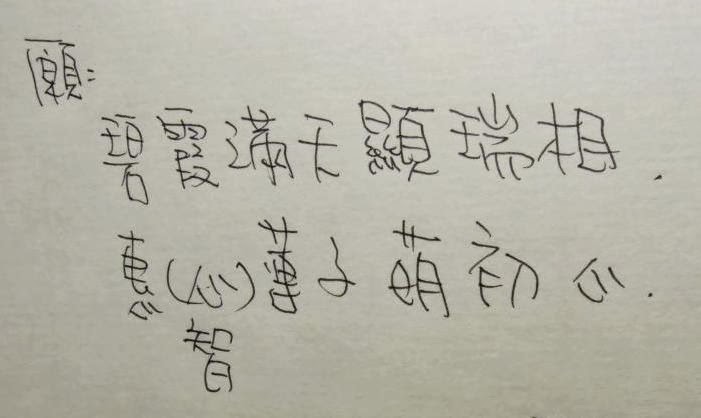 願:
碧霞滿天顯瑞相.
惠(心)子萌初心.
智